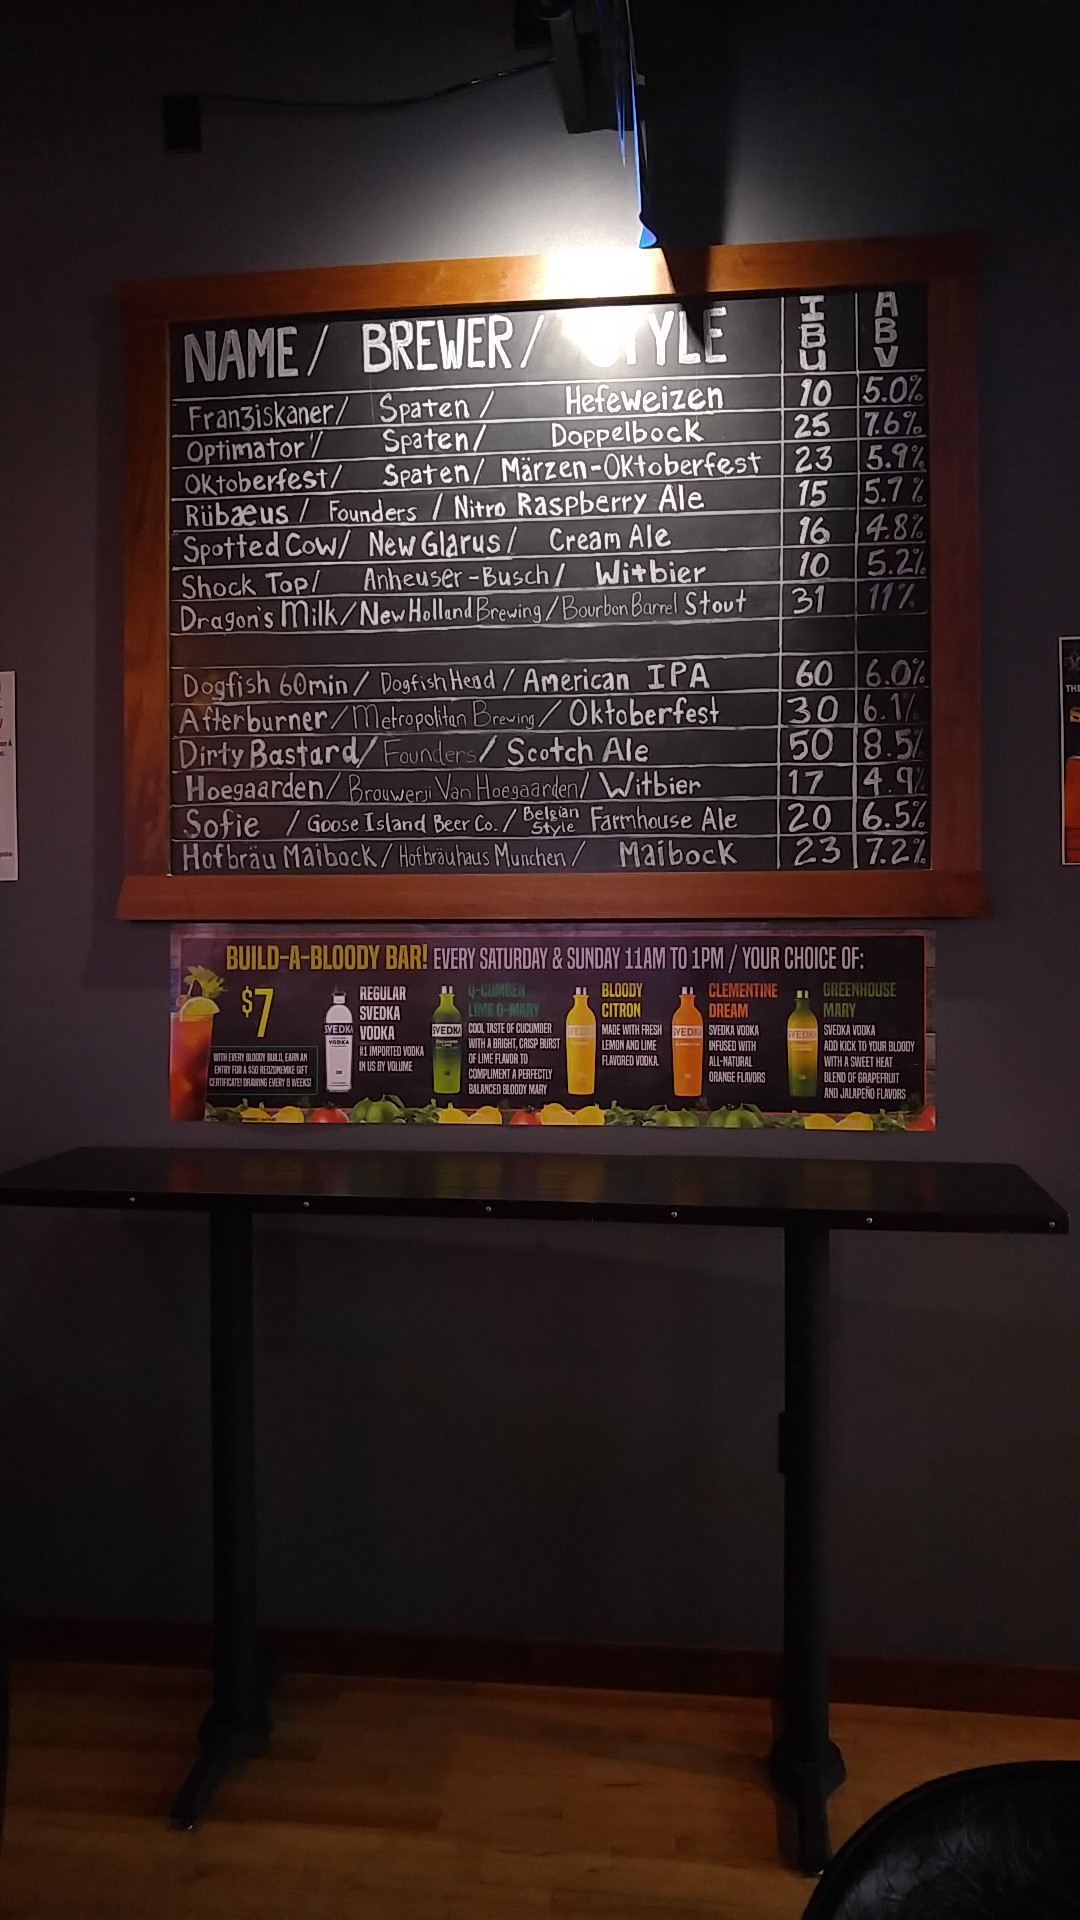 NAME / BREWER / STYLE IBU ABV
Franziskaner / Spaten / Hefeweizen 10 5.0%
Optimator / Spaten / Doppelbock 25 7.6%
Oktoberfest / Spaten / Märzen-Oktoberfest 23 5.9%
Rübæus / Founders / Nitro Raspberry Ale 15 5.7%
Spotted Cow / New Glarus / Cream Ale 16 4.8%
Shock Top / Anheuser-Busch / Witbier 10 5.2%
Dragon's Milk / New Holland Brewing / Bourbon Barrel Stout 31 11%
Dogfish 60min / Dogfish Head / American IPA 60 6.0%
Afterburner / Metropolitan Brewing / Oktoberfest 30 6.1%
Dirty Bastard / Founders / Scotch Ale 50 8.5%
Hoegaarden / Brouwerij Van Hoegaarden / Witbier 17 4.9%
Sofie / Goose Island Beer Co. / Belgian Style Farmhouse Ale 20 6.5%
Hofbräu Maibock / Hofbräuhaus Munchen / Maibock 23 7.2%
BUILD-A-BLOODY BAR! EVERY SATURDAY & SUNDAY 11AM TO 1PM / YOUR CHOICE OF:
$7
WITH EVERY BLOODY BUILD, EARN AN
ENTRY FOR A $50 REIZONEMKE GIFT
CERTIFICATE! DRAWING EVERY 8 WEEKS!
SVEDKA
VODKA
REGULAR
SVEDKA
VODKA
#1 IMPORTED VODKA
IN US BY VOLUME
SVEDKA
Q-CUMBER
LIME O-MARY
COOL TASTE OF CUCUMBER
WITH A BRIGHT, CRISP BURST
OF LIME FLAVOR TO
COMPLIMENT A PERFECTLY
BALANCED BLOODY MARY
SVEDKA
BLOODY
CITRON
MADE WITH FRESH
LEMON AND LIME
FLAVORED VODKA.
SVEDKA
CLEMENTINE
DREAM
SVEDKA VODKA
INFUSED WITH
ALL-NATURAL
ORANGE FLAVORS
SVEDKA
GREENHOUSE
MARY
SVEDKA VODKA
ADD KICK TO YOUR BLOODY
WITH A SWEET HEAT
BLEND OF GRAPEFRUIT
AND JALAPEÑO FLAVORS